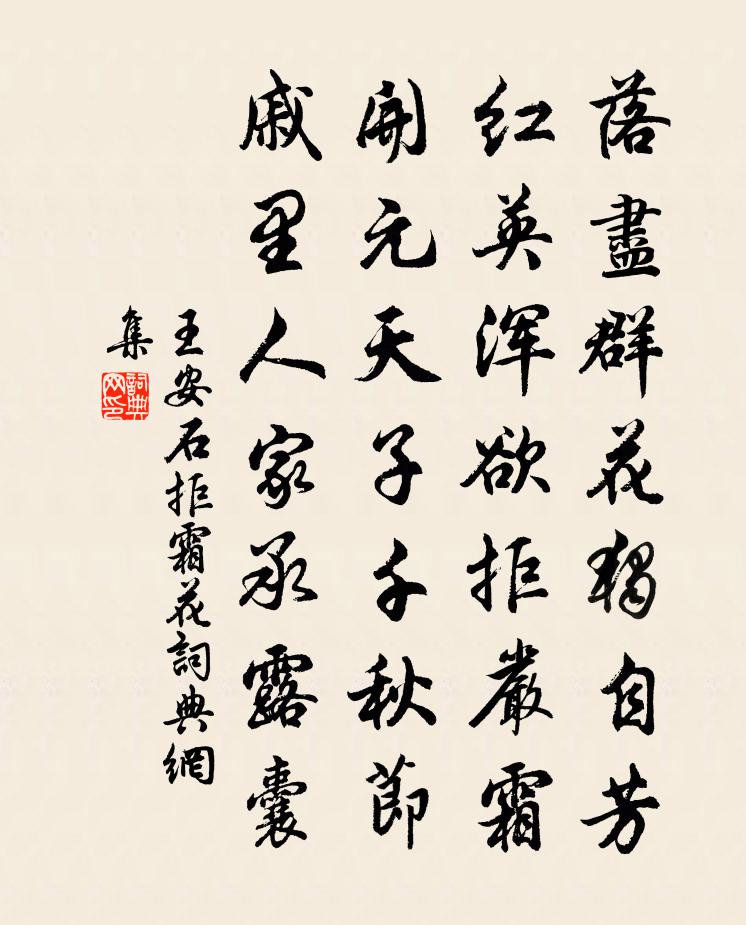 落盡群花獨自芳
紅英渾欲拒嚴霜
開元天子千秋節
戚里人家承露囊
王安石拒霜花詞典網
集
詞典
网印